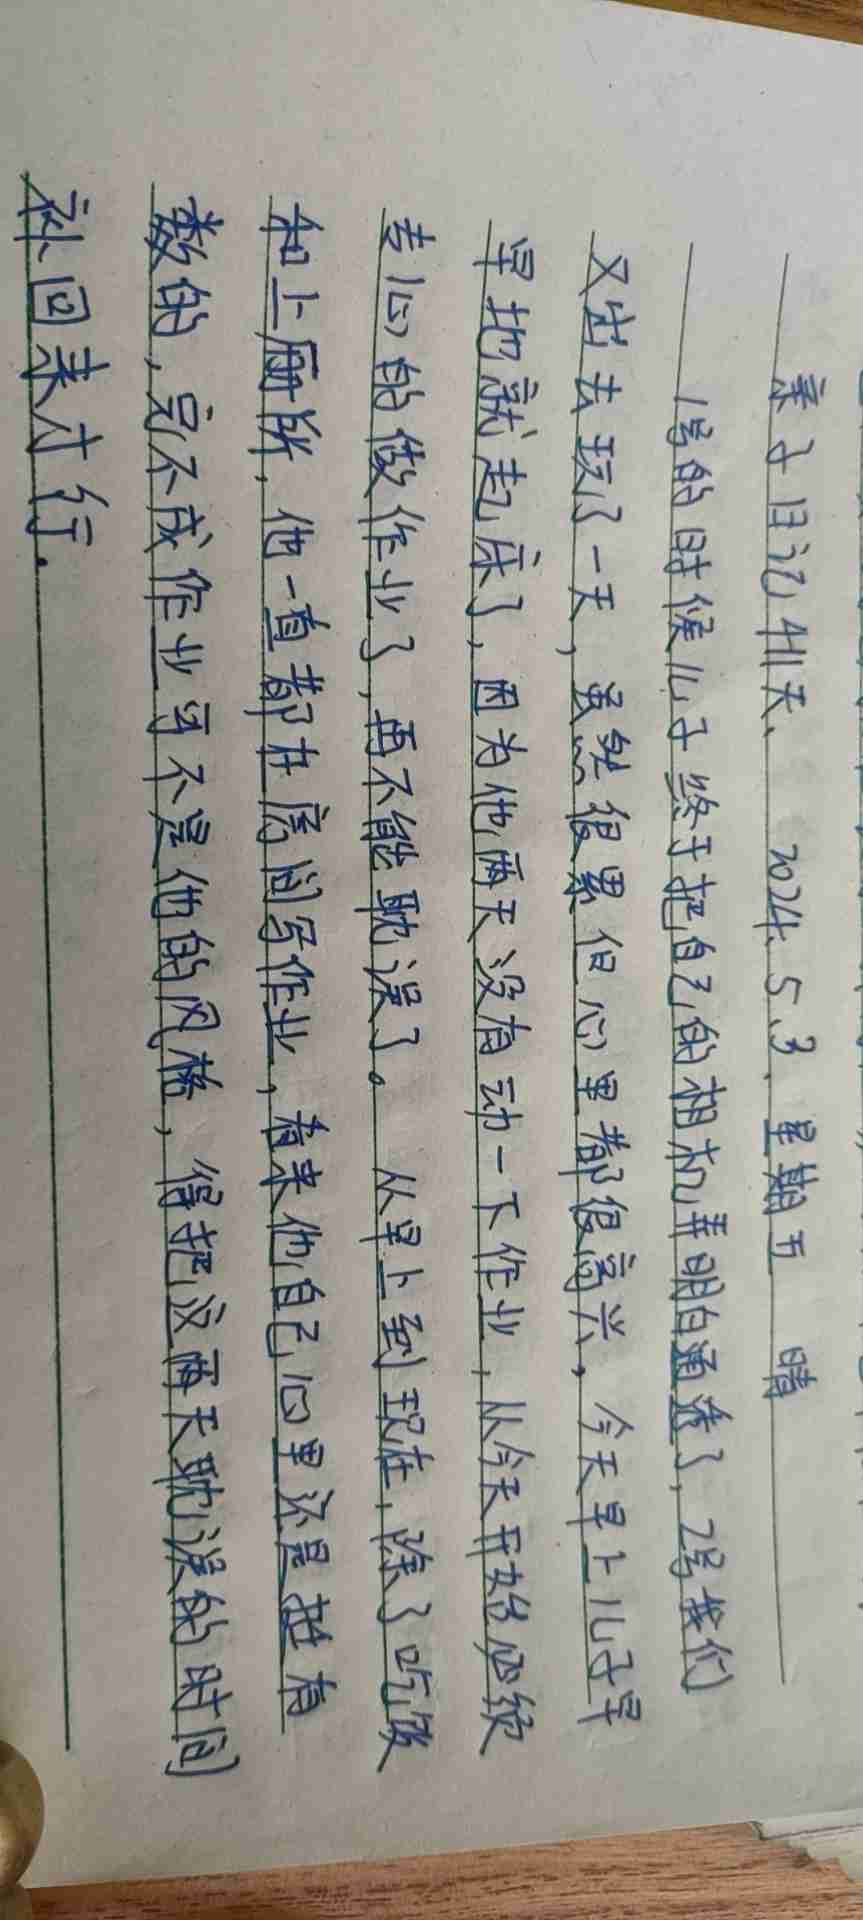 亲子日记411天、 2024.5.3. 星期五 晴
1号的时候儿子终于把自己的相机弄明白通透了,2号我们
又出去玩了一天,虽然很累但心里都很高兴,今天早上儿子早
早地就起床了,因为他两天没有动一下作业,从今天开始必须
专心的做作业了,再不能耽误了。从早上到现在,除了吃饭
和上厕所,他一直都在房间写作业,看来他自己心里还是挺有
数的,完不成作业可不是他的风格,得把这两天耽误的时间
补回来才行.